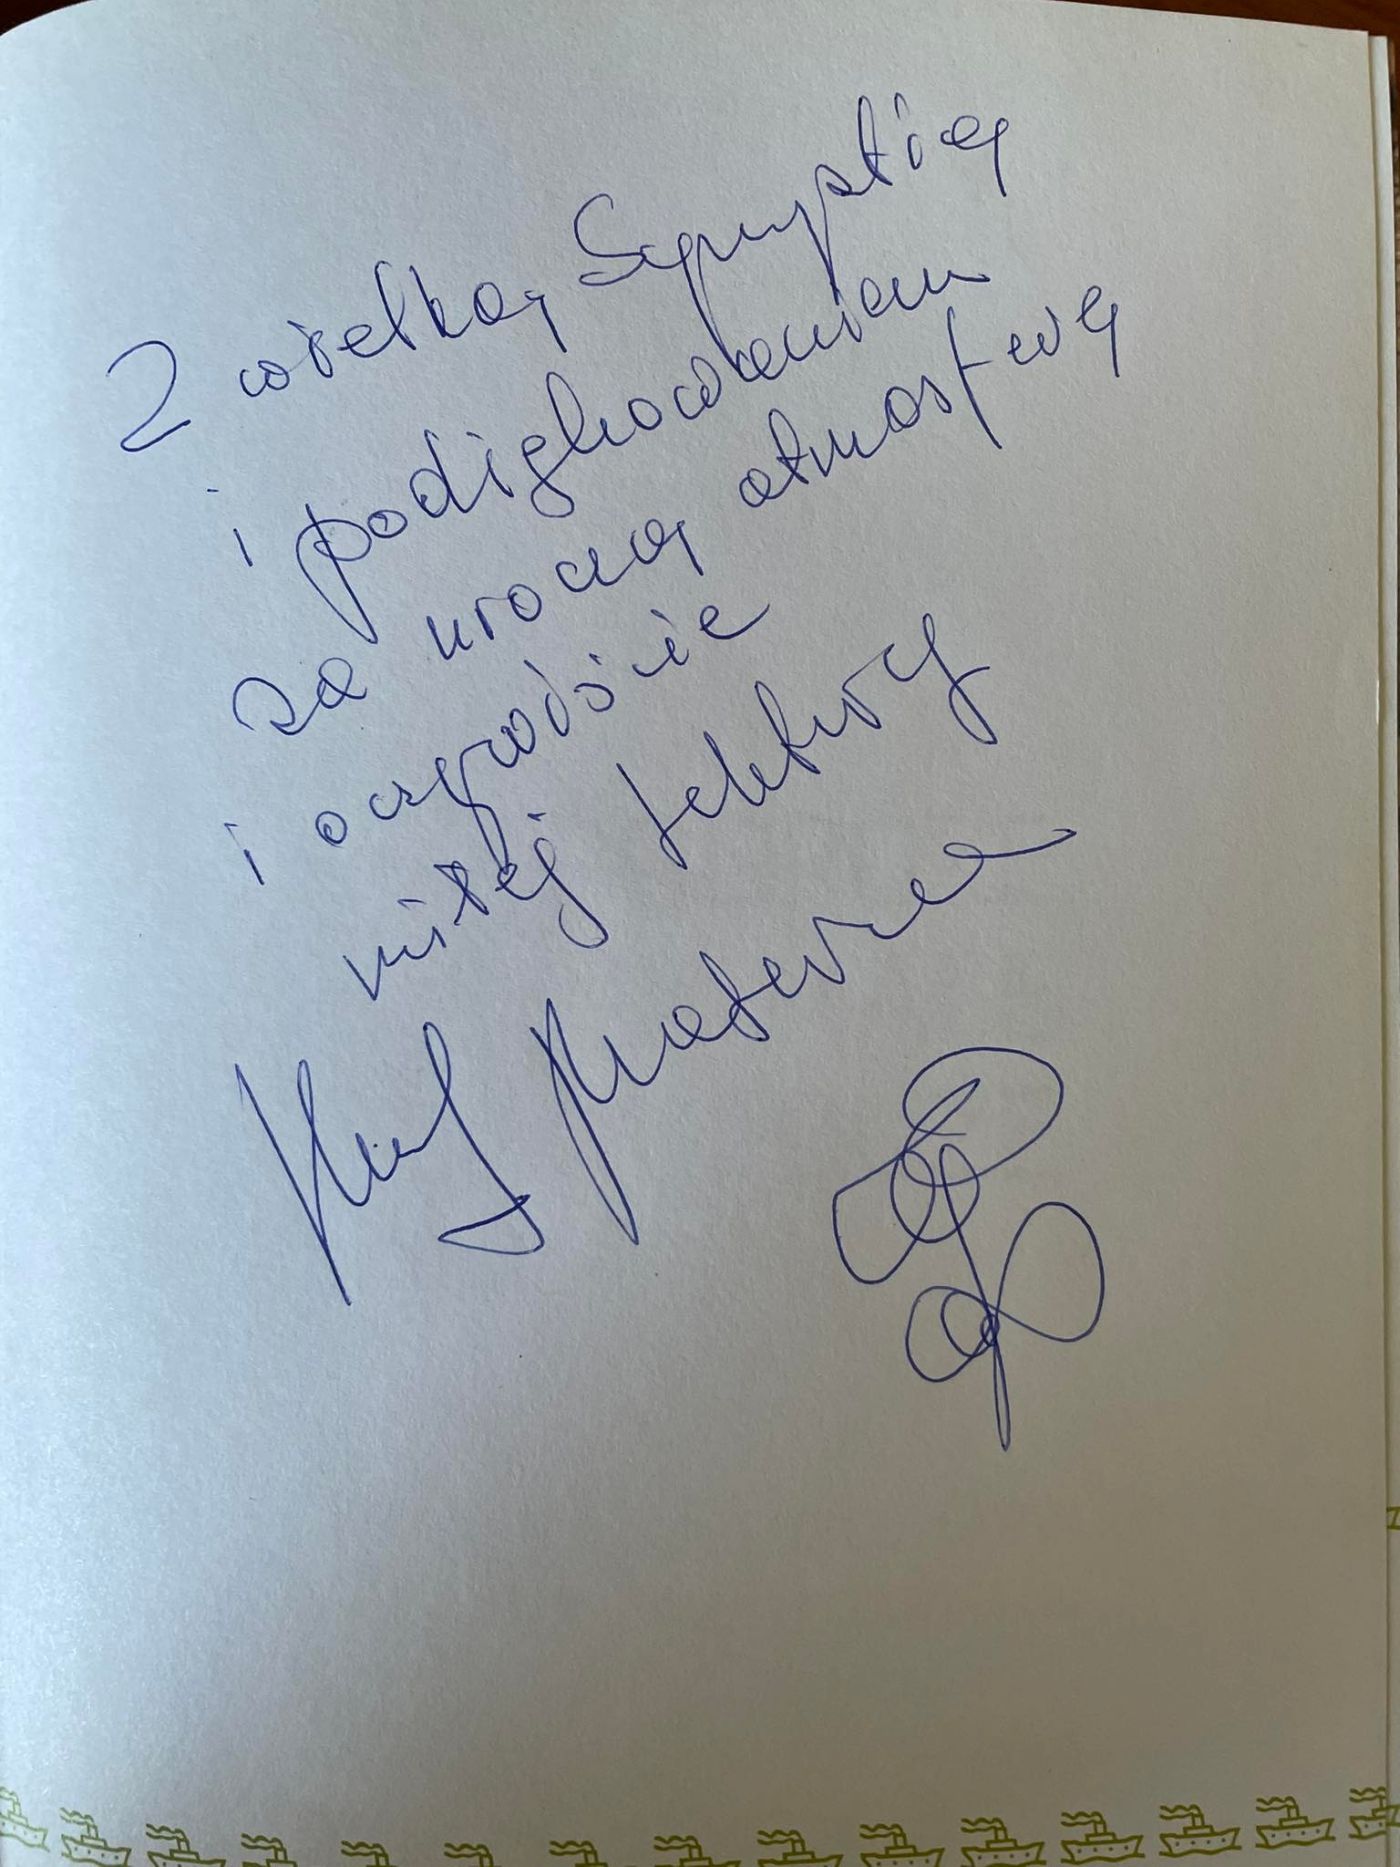 Z wielką Sympatią
i podziękowaniem
za uroczą atmosferę
i ogrodzie
miłej lektury
Materna